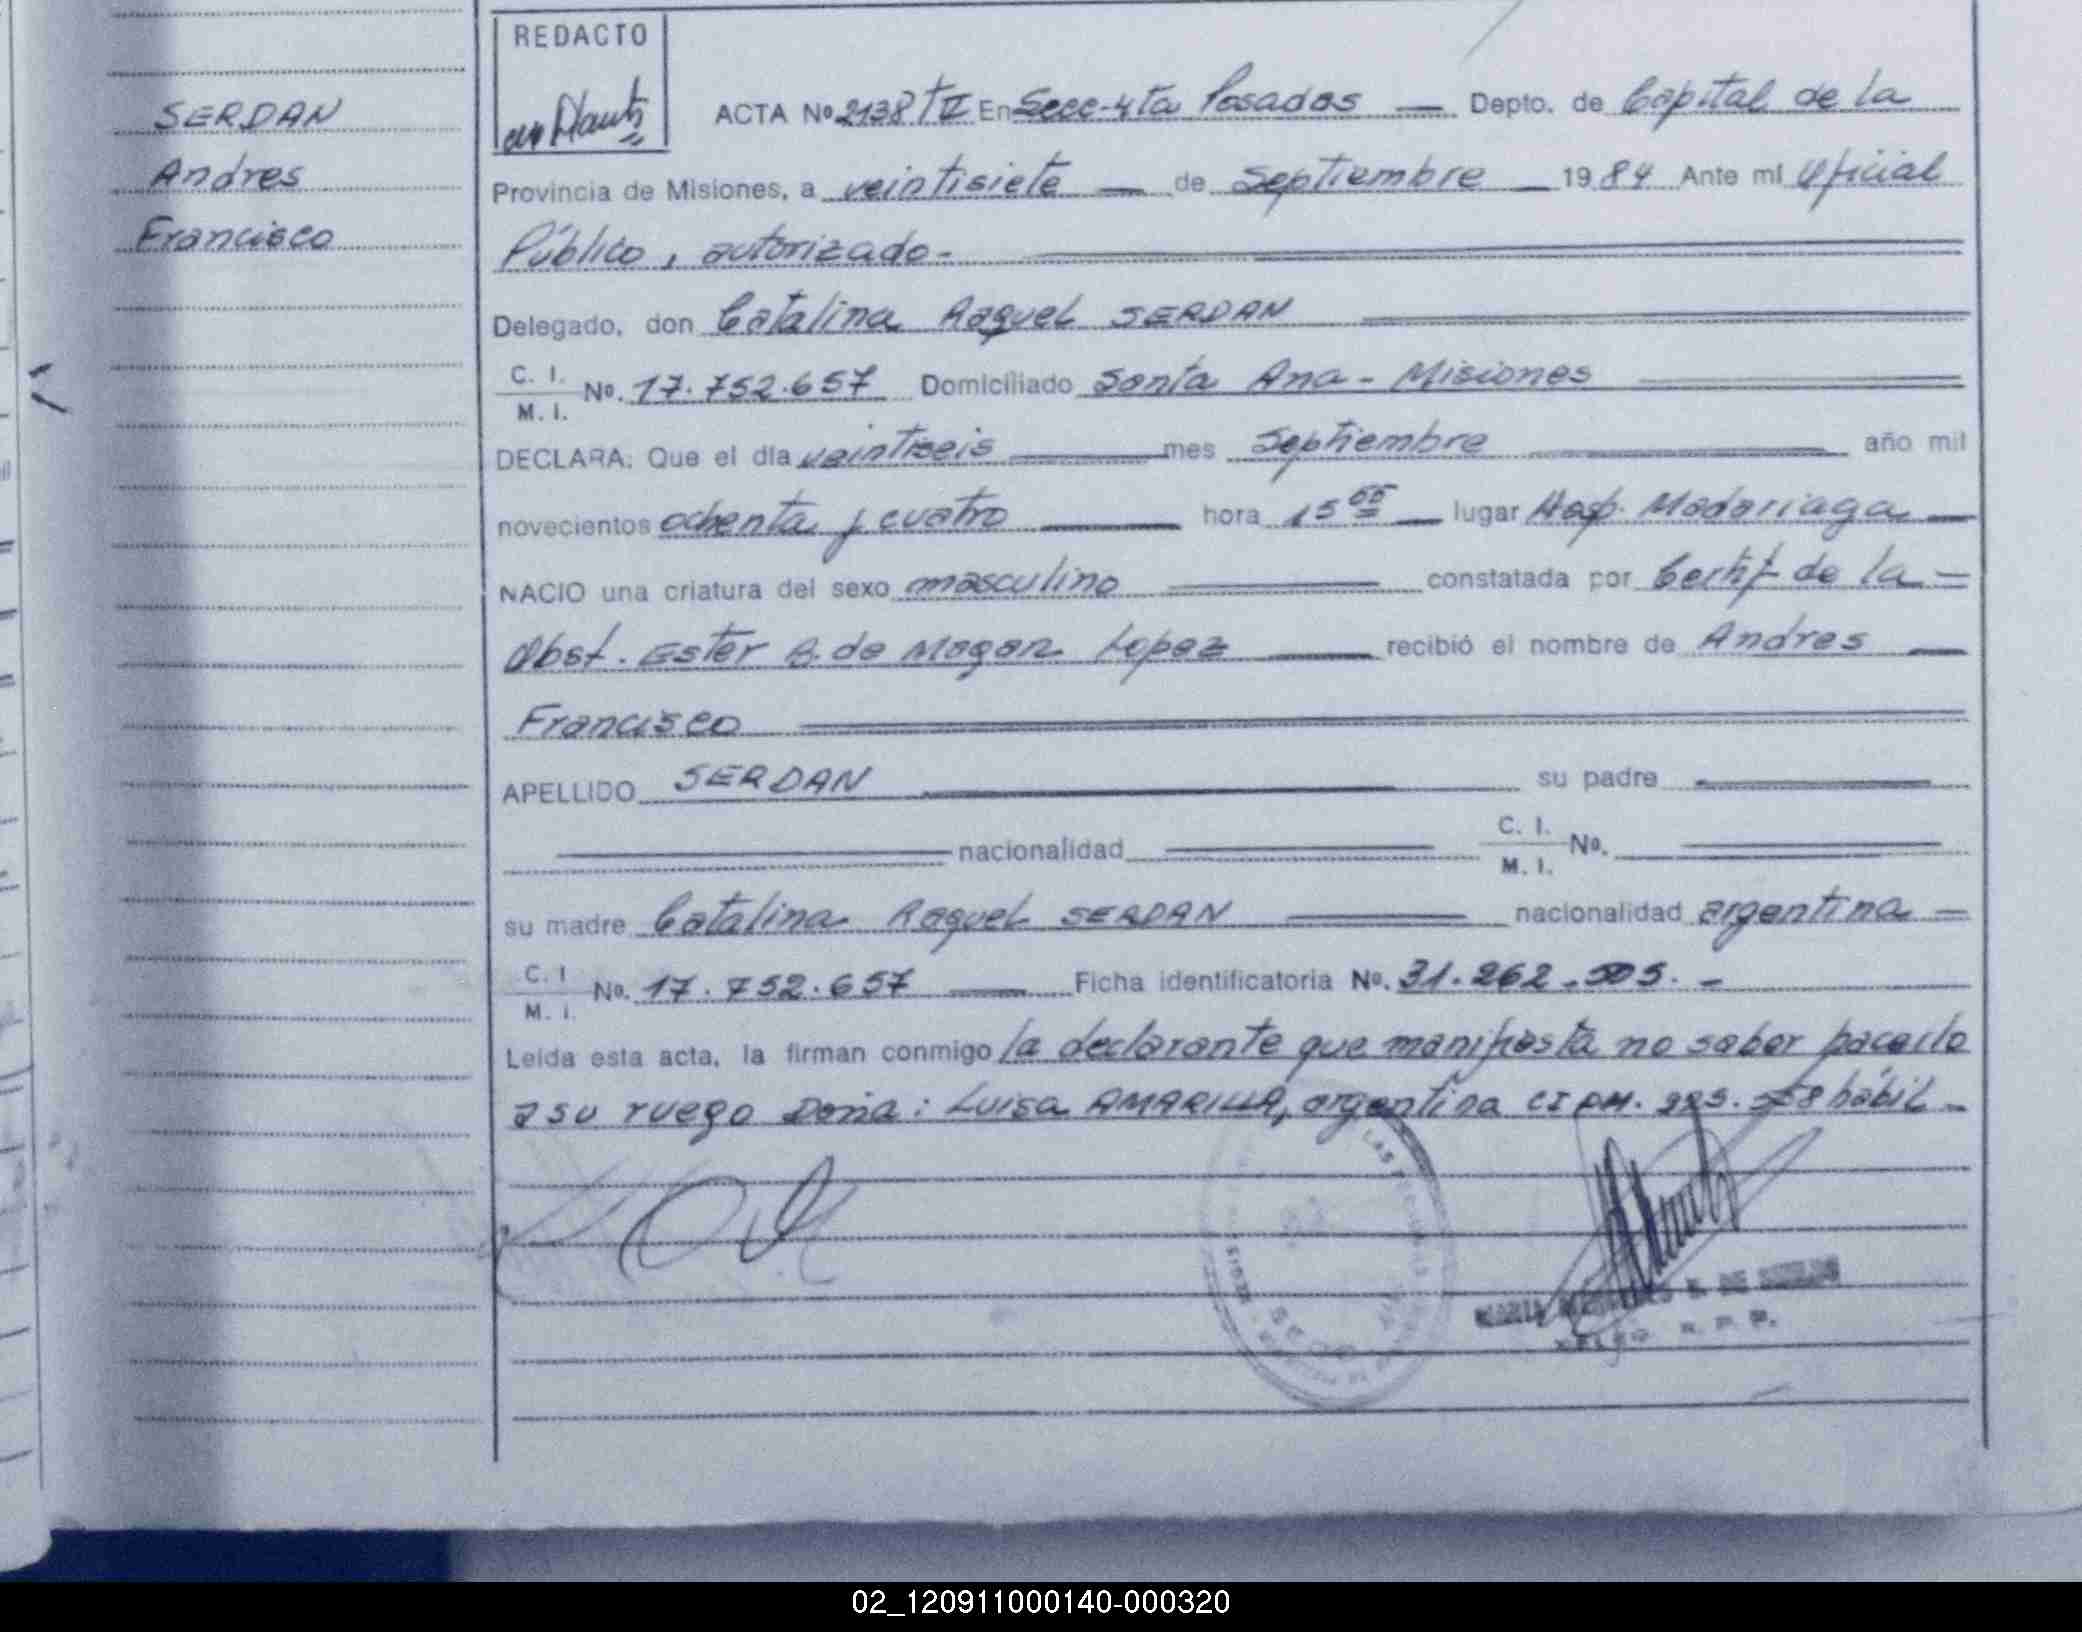 REDACTO
SERDAN
Andres
Francisco
ACTA Nº 2138 tII En Secc-4ta Posadas Depto. de Capital de la
Provincia de Misiones, a veintisiete de Septiembre 1984 Ante mí Oficial
Público, autorizado-
Delegado, don Catalina Raquel SERDAN
C. I. M. I. Nº. 17.752.657 Domiciliado Santa Ana - Misiones
DECLARA: Que el día veintiseis mes Septiembre año mil
novecientos ochenta y cuatro hora 15 lugar Hosp. Madariaga
NACIO una criatura del sexo masculino constatada por Certif de la
Obst. Ester B. de Lopez recibió el nombre de Andres
Francisco
APELLIDO SERDAN su padre
nacionalidad C. I. M. I. Nº.
su madre Catalina Raquel SERDAN nacionalidad argentina
C. I M. I. Nº. 17.752.657 Ficha identificatoria Nº. 31.262.505.-
Leída esta acta, la firman conmigo la declarante que manifiesta no saber hacerlo
a su ruego Doña: Luisa AMARILLA, argentina hábil-
02_120911000140-000320